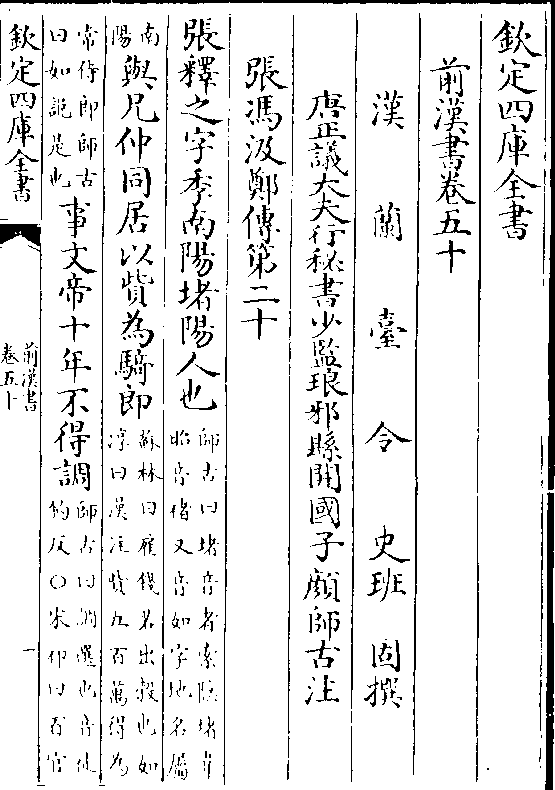 欽定四庫全書
前漢書卷五十
漢蘭臺令史班固撰
唐正議大夫行秘書少監琅邪縣開國子顔師古注
張馮汲鄭傳第二十
張釋之字季南陽堵陽人也
師古曰堵音者
昭音堵又音如字地名屬
南陽
與兄仲同居以貲為騎郎
蘇林曰雇錢若出穀也如
淳曰漢注貲五百萬得為
常侍郎師古
曰如說是也
事文帝十年不得調
師古曰調選也音徒
釣反〇宋祁曰百官
欽定四庫全書
前漢書
卷五十
一